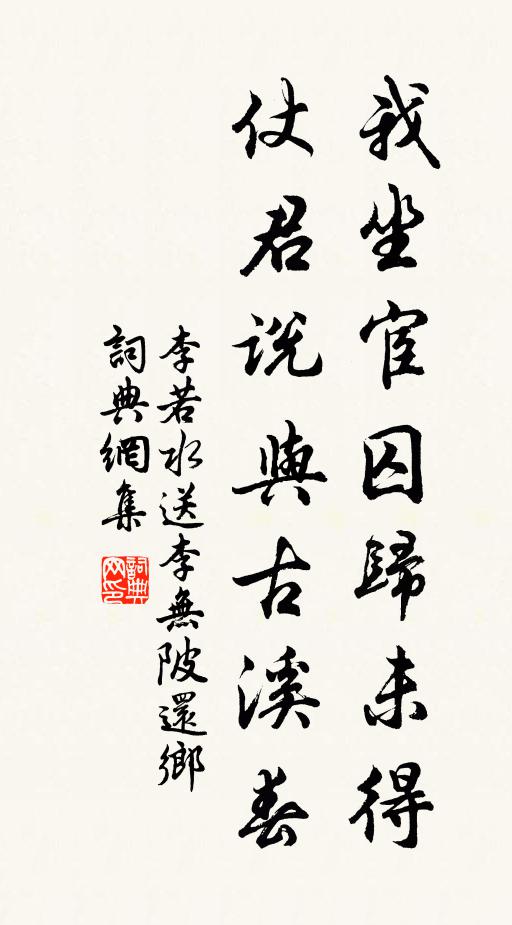 我坐官囚歸未得
仗君説與古溪春
李若水送李無陂還鄉
詞典網集
詞典网印